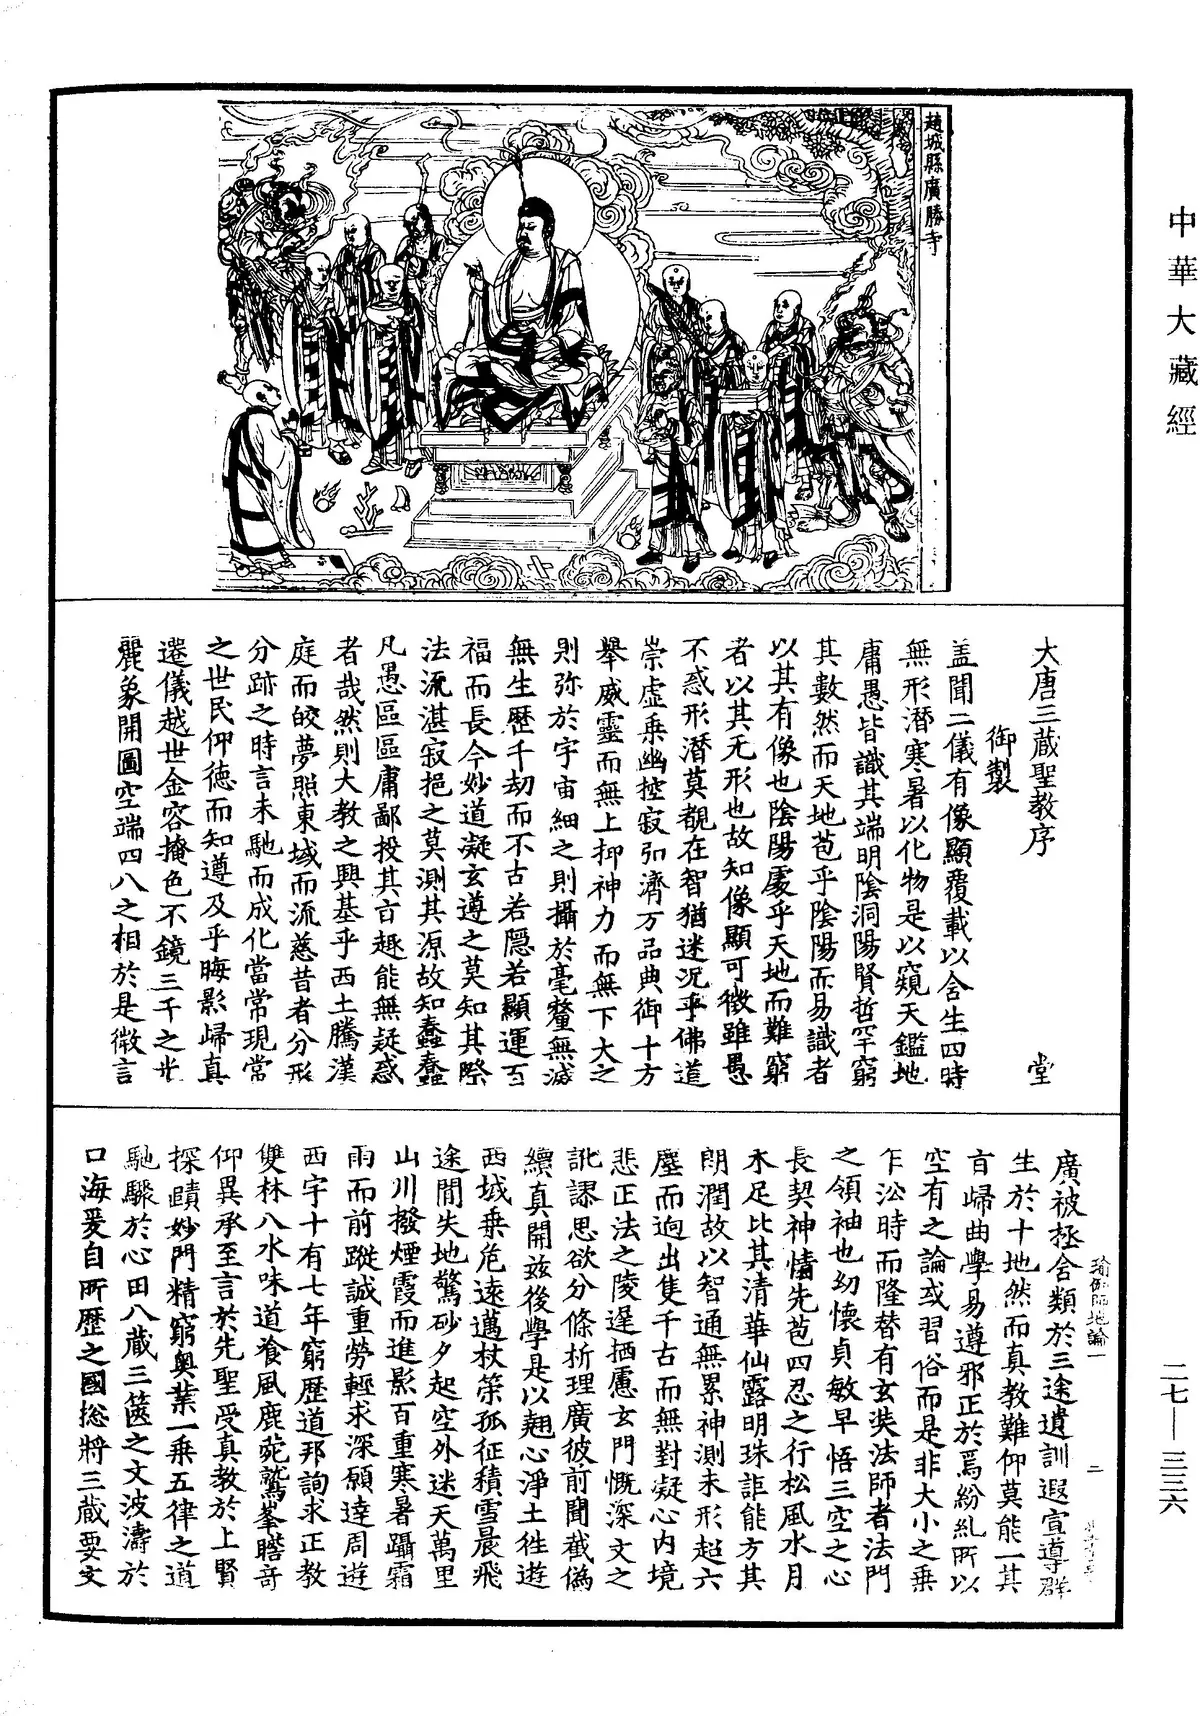 中華大藏經
趙城縣廣勝寺
大唐三藏聖教序 堂
御製
盖聞二儀有像顯覆載以含生四時
無形潛寒暑以化物是以窺天鑑地
庸愚皆識其端明陰洞陽賢哲罕窮
其數然而天地苞乎陰陽而易識者
以其有像也陰陽處乎天地而難窮
者以其无形也故知像顯可徵雖愚
不惑形潛莫覩在智猶迷況乎佛道
崇虛乗幽控寂弘濟万品典御十方
舉威靈而無上抑神力而無下大之
則弥於宇宙細之則攝於毫釐無滅
無生歷千劫而不古若隱若顯運百
福而長今妙道凝玄遵之莫知其際
法流湛寂挹之莫測其源故知蠢蠢
凡愚區區庸鄙投其㫖趣能無疑惑
者哉然則大教之興基乎西土騰漢
庭而皎夢照東域而流慈昔者分形
分跡之時言未馳而成化當常現常
之世民仰德而知遵及乎晦影歸真
遷儀越世金容掩色不鏡三千之光
麗象開圖空端四八之相於是微言
廣被拯含類於三途遺訓遐宣導群
生於十地然而真教難仰莫能一其
㫖歸曲學易遵邪正於焉紛糺所以
空有之論或習俗而是非大小之乗
乍訟時而隆替有玄奘法師者法門
之領袖也幼懷貞敏早悟三空之心
長契神情先苞四忍之行松風水月
未足比其清華仙露明珠詎能方其
朗潤故以智通無累神測未形超六
塵而逈出隻千古而無對凝心內境
悲正法之陵遲栖慮玄門慨深文之
訛謬思欲分條析理廣彼前聞截偽
續真開兹後學是以翹心淨土往遊
西域乗危遠邁杖策孤征積雪晨飛
途間失地驚砂夕起空外迷天萬里
山川撥煙霞而進影百重寒暑躡霜
雨而前蹤誠重勞輕求深願達周遊
西宇十有七年窮歷道邦詢求正教
雙林八水味道飡風鹿菀鷲峯瞻竒
仰異承至言於先聖受真教於上賢
探賾妙門精窮奥業一乗五律之道
馳驟於心田八藏三篋之文波濤於
口海爰自所歷之國捴將三藏要文
瑜伽師地論一 二
二七—三三六